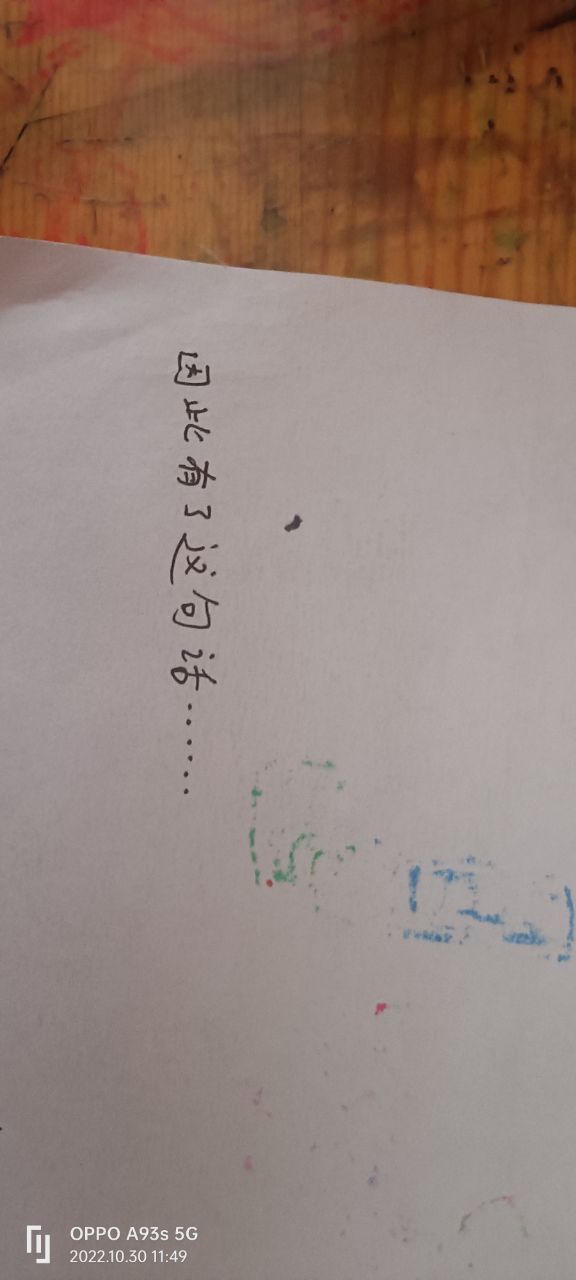 因此有了这句话……
OPPO A93s 5G
2022.10.30 11:49